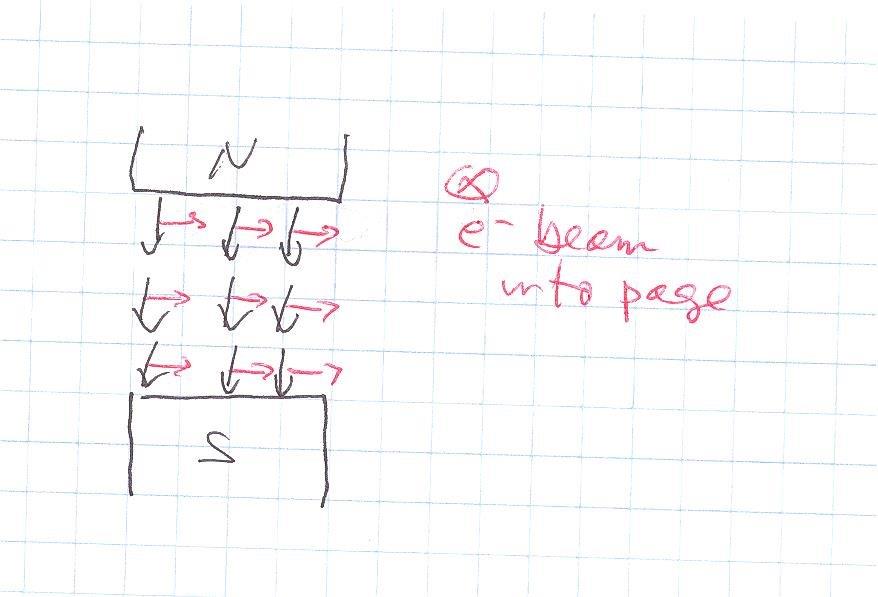 N
⊗
e⁻ beam
into page
S